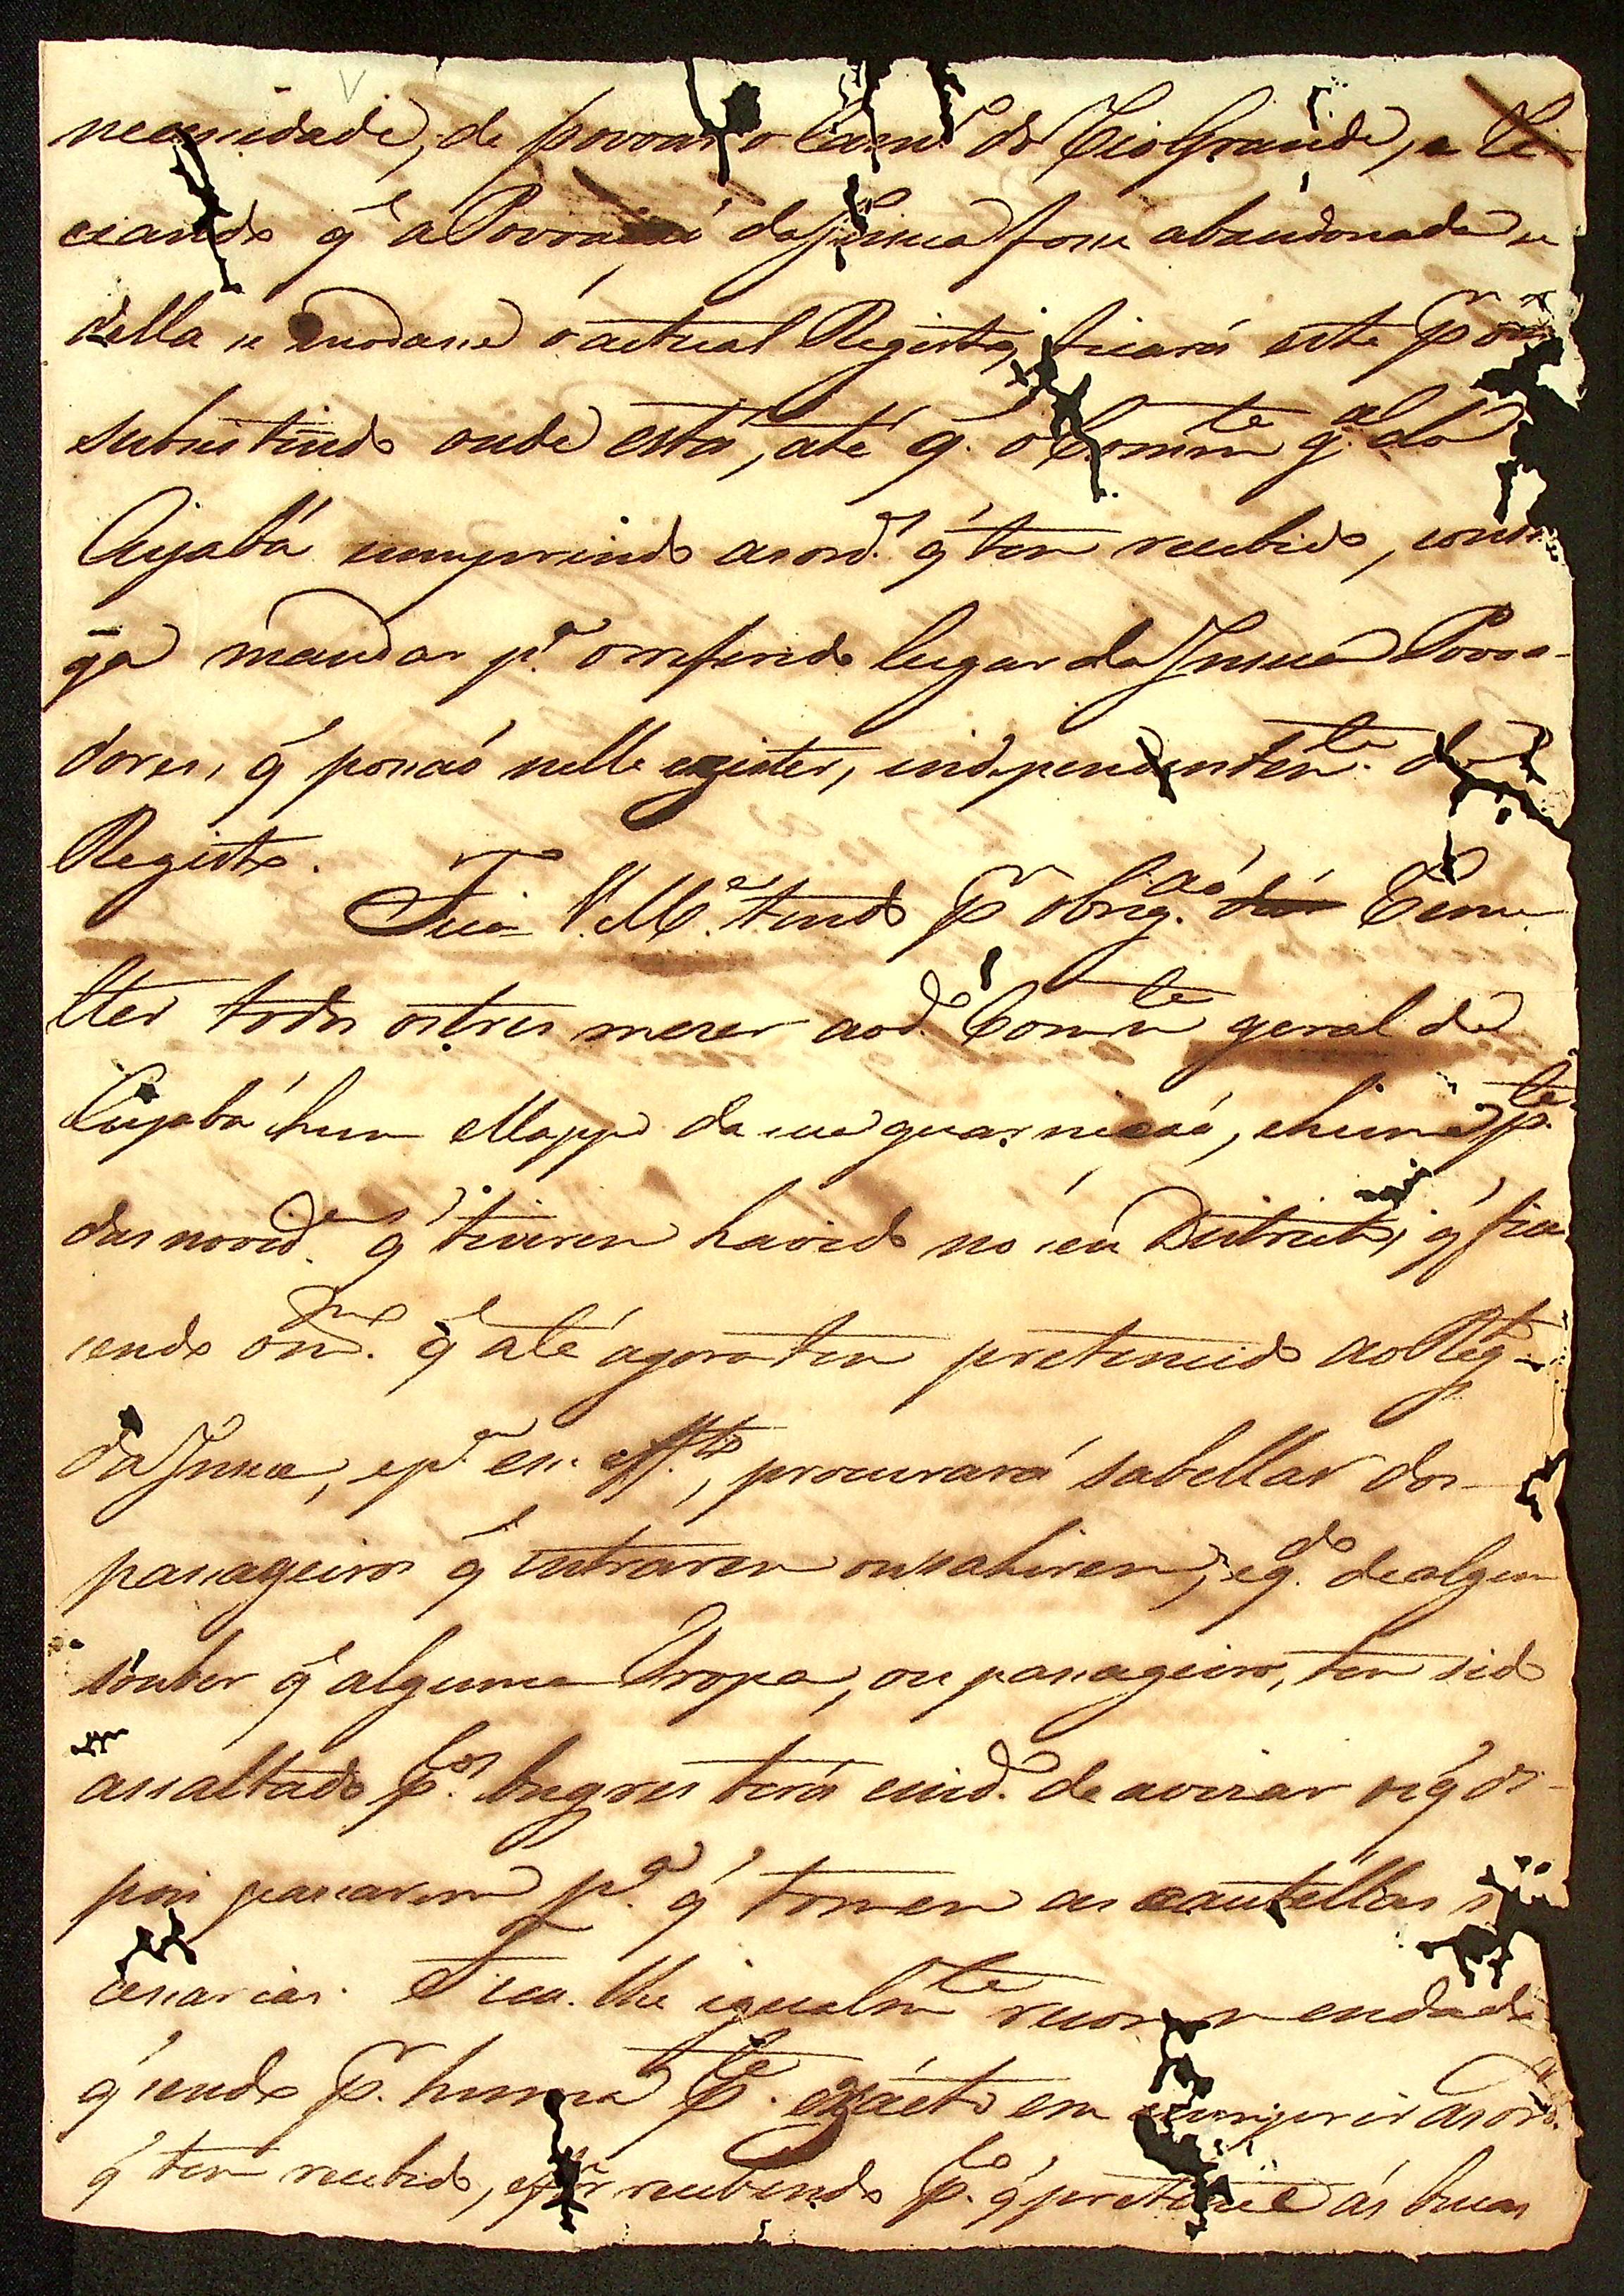 necessidade, de povoar o Cam.º do Rio Grande, e Re-
ceando q̃ a Povoação da Insua fosse abandonada se
della se mudasse o actual Registo, ficará este p.r ora
subsistindo onde está, até q. o Comm.te g.al do
Cujabá cumprindo as ord.s q̃ tem recebido, consi-
ga mandar p.ª o referido lugar da Insua Povoa-
dores, q̃ possaõ nelle existir, independentem.te do
Registo.
Fica V. M.ce tendo p.r obrig.aõ Reme-
tter todos os tres mezes ao d.º Comm.te geral de
Cujabá hum Mappa da sua guarniçaõ, e huma p.te
das novid.es q̃ tiverem havido no seu Districto, q̃ fica
sendo o m.mo q̃ até agora tem pretencido ao Reg.to
da Insua, e p.ª esse eff.to, procurará saber dos
passageiros q̃ entrarem ou sahirem, e q.do de algum
souber q̃ alguma Tropa, ou passageiro, tem sido
assaltado p.los bugres terá cuid.º de avizar os q̃ de-
pois passarem p.ª q̃ tomem as cautellas ne-
cessarias. Fica-lhe igualm.te recommendado
q̃ sendo p.r huma p.te exácto em cumprir as ord.s
q̃ tem recebido, e for recebendo p.lo q̃ pretence ás suas